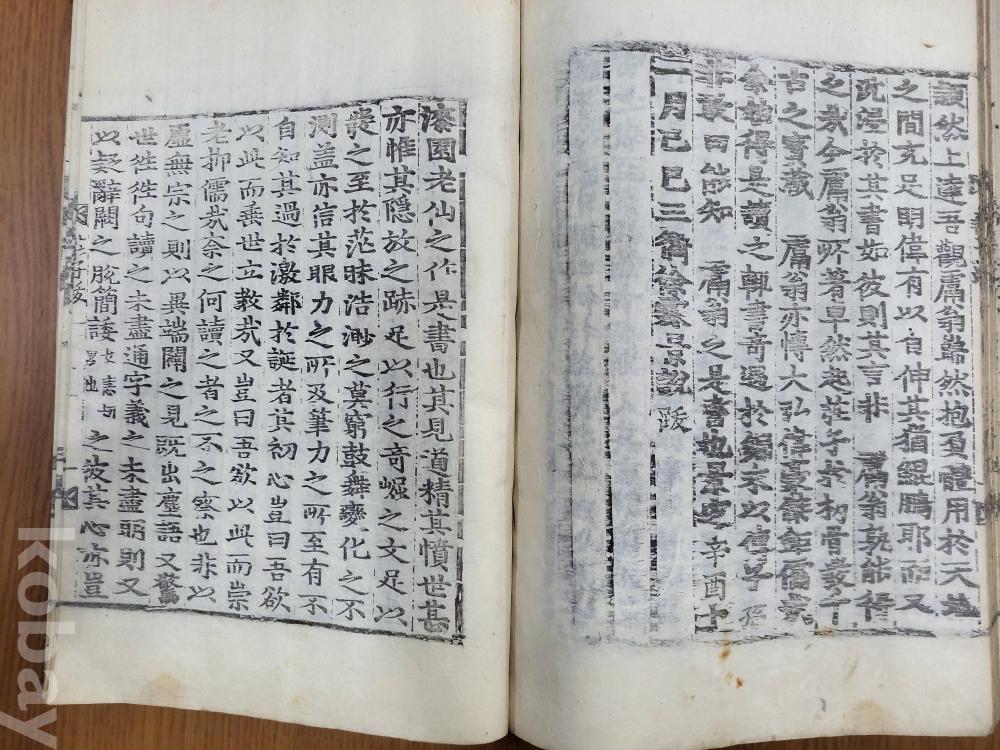 顥然上達吾觀鬳翁嶷然抱負體用於天地
之間充足明偉有以自伸其猶鯤鵬耶而又
沈浸於其書如彼則其言非 鬳翁孰能得
之哉今鬳翁所著卓然起莊子於朽骨發千
古之寶藏 鬳翁亦博大弘偉
余趍得是讀之輒書奇遇於編末以
非敢曰能知 鬳翁之是書也景定辛酉十
一月己巳三 徐霖景說 跋
漆園老仙之作是書也其見道精其憤世甚
亦惟其隱放之跡足以行之奇崛之文足以
喪之至於茫昧浩渺之莫窮鼓舞變化之不
測盖亦信其眼力之所及筆力之所至有不
自知其過於激鄰於誕者其初心豈曰吾欲
以此而垂世立教哉又豈曰吾欲以此而崇
老抑儒哉奈之何讀之者之不之察也非以
虛無宗之則以異端闢之見既出塵語又驚
世徃徃句讀之未盡通字義之未盡明則又
以疑辭闕之脫簡諉 之彼其心亦豈
kobay